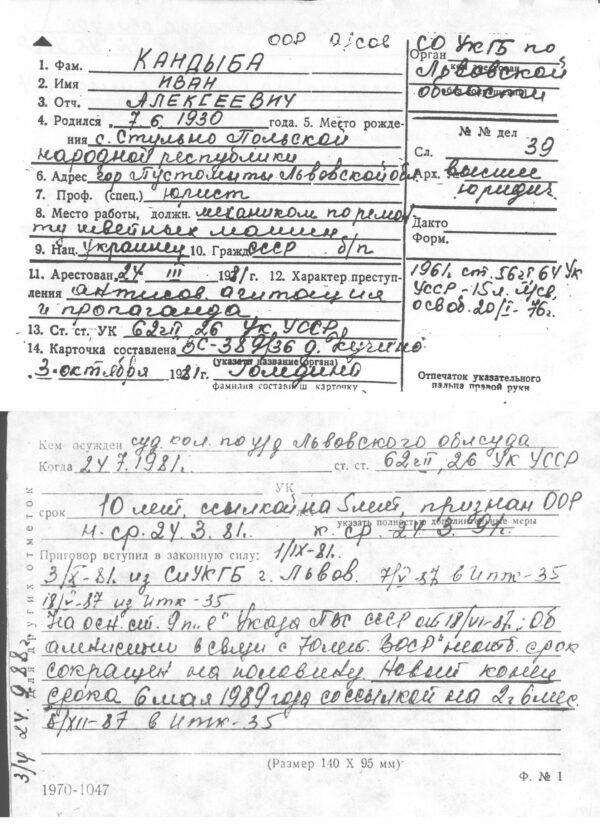 ООР а/сов
1. Фам. КАНДЫБА
2. Имя ИВАН
3. Отч. АЛЕКСЕЕВИЧ
4. Родился 7 6 1930 года. 5. Место рожде-
ния с. Стульно Польской
народной республики
6. Адрес гор Пустомыты Львовской обл
7. Проф. (спец.) юрист
8. Место работы, должн. механиком по ремон
ту швейных машин
9. Нац. украинец 10. Гражд СССР б/п
11. Арестован 24 III 1981 г. 12. Характер преступ-
ления антисов. агитация
и пропаганда
13. Ст. ст. УК 62 ч II, 26 УК УССР
14. Карточка составлена ВС-389/36 д. Кучино
(указать название органа)
3 октября 1981 г.
фамилия составивш карточку
Орган СО УКГБ по
Львовской
области
№ № дел
Сл. 39
Арх. высшее
юридич.
Дакто
Форм.
1961г. ст. 56 ч I 64 УК
УССР - 15 л. л/св,
освоб. 20/I - 76г.
Отпечаток указательного
пальца правой руки
Кем осужден суд. кол. по у/д Львовского облсуда
Когда 24 7. 1981г. ст. ст. 62 ч II, 26 УК УССР
УК
срок 10 лет, ссылкой на 5 лет, признан ООР
указать полностью дополнительные меры
н. ср. 24. 3. 81. к. ср. 24. 3. 91г.
Приговор вступил в законную силу: 1/IX-81.
3/X-81. из СИ УКГБ г. Львов. 7/V-87 в ИТК-35
18/V-87 из ИТК-35
На осн. ст. 9 п. "Указа ПВС СССР от 18/VI-87. "Об
амнистии в связи с 70 лет. ВОСР" неотб. срок
сокращен на половину Новый конец
срока 6 мая 1989 года со ссылкой на 2 г 6 мес.
5/XII-87 в ИТК-35
Для других отметок
24. 9 88 г.
(Размер 140 X 95 мм)
Ф. № 1
1970-1047